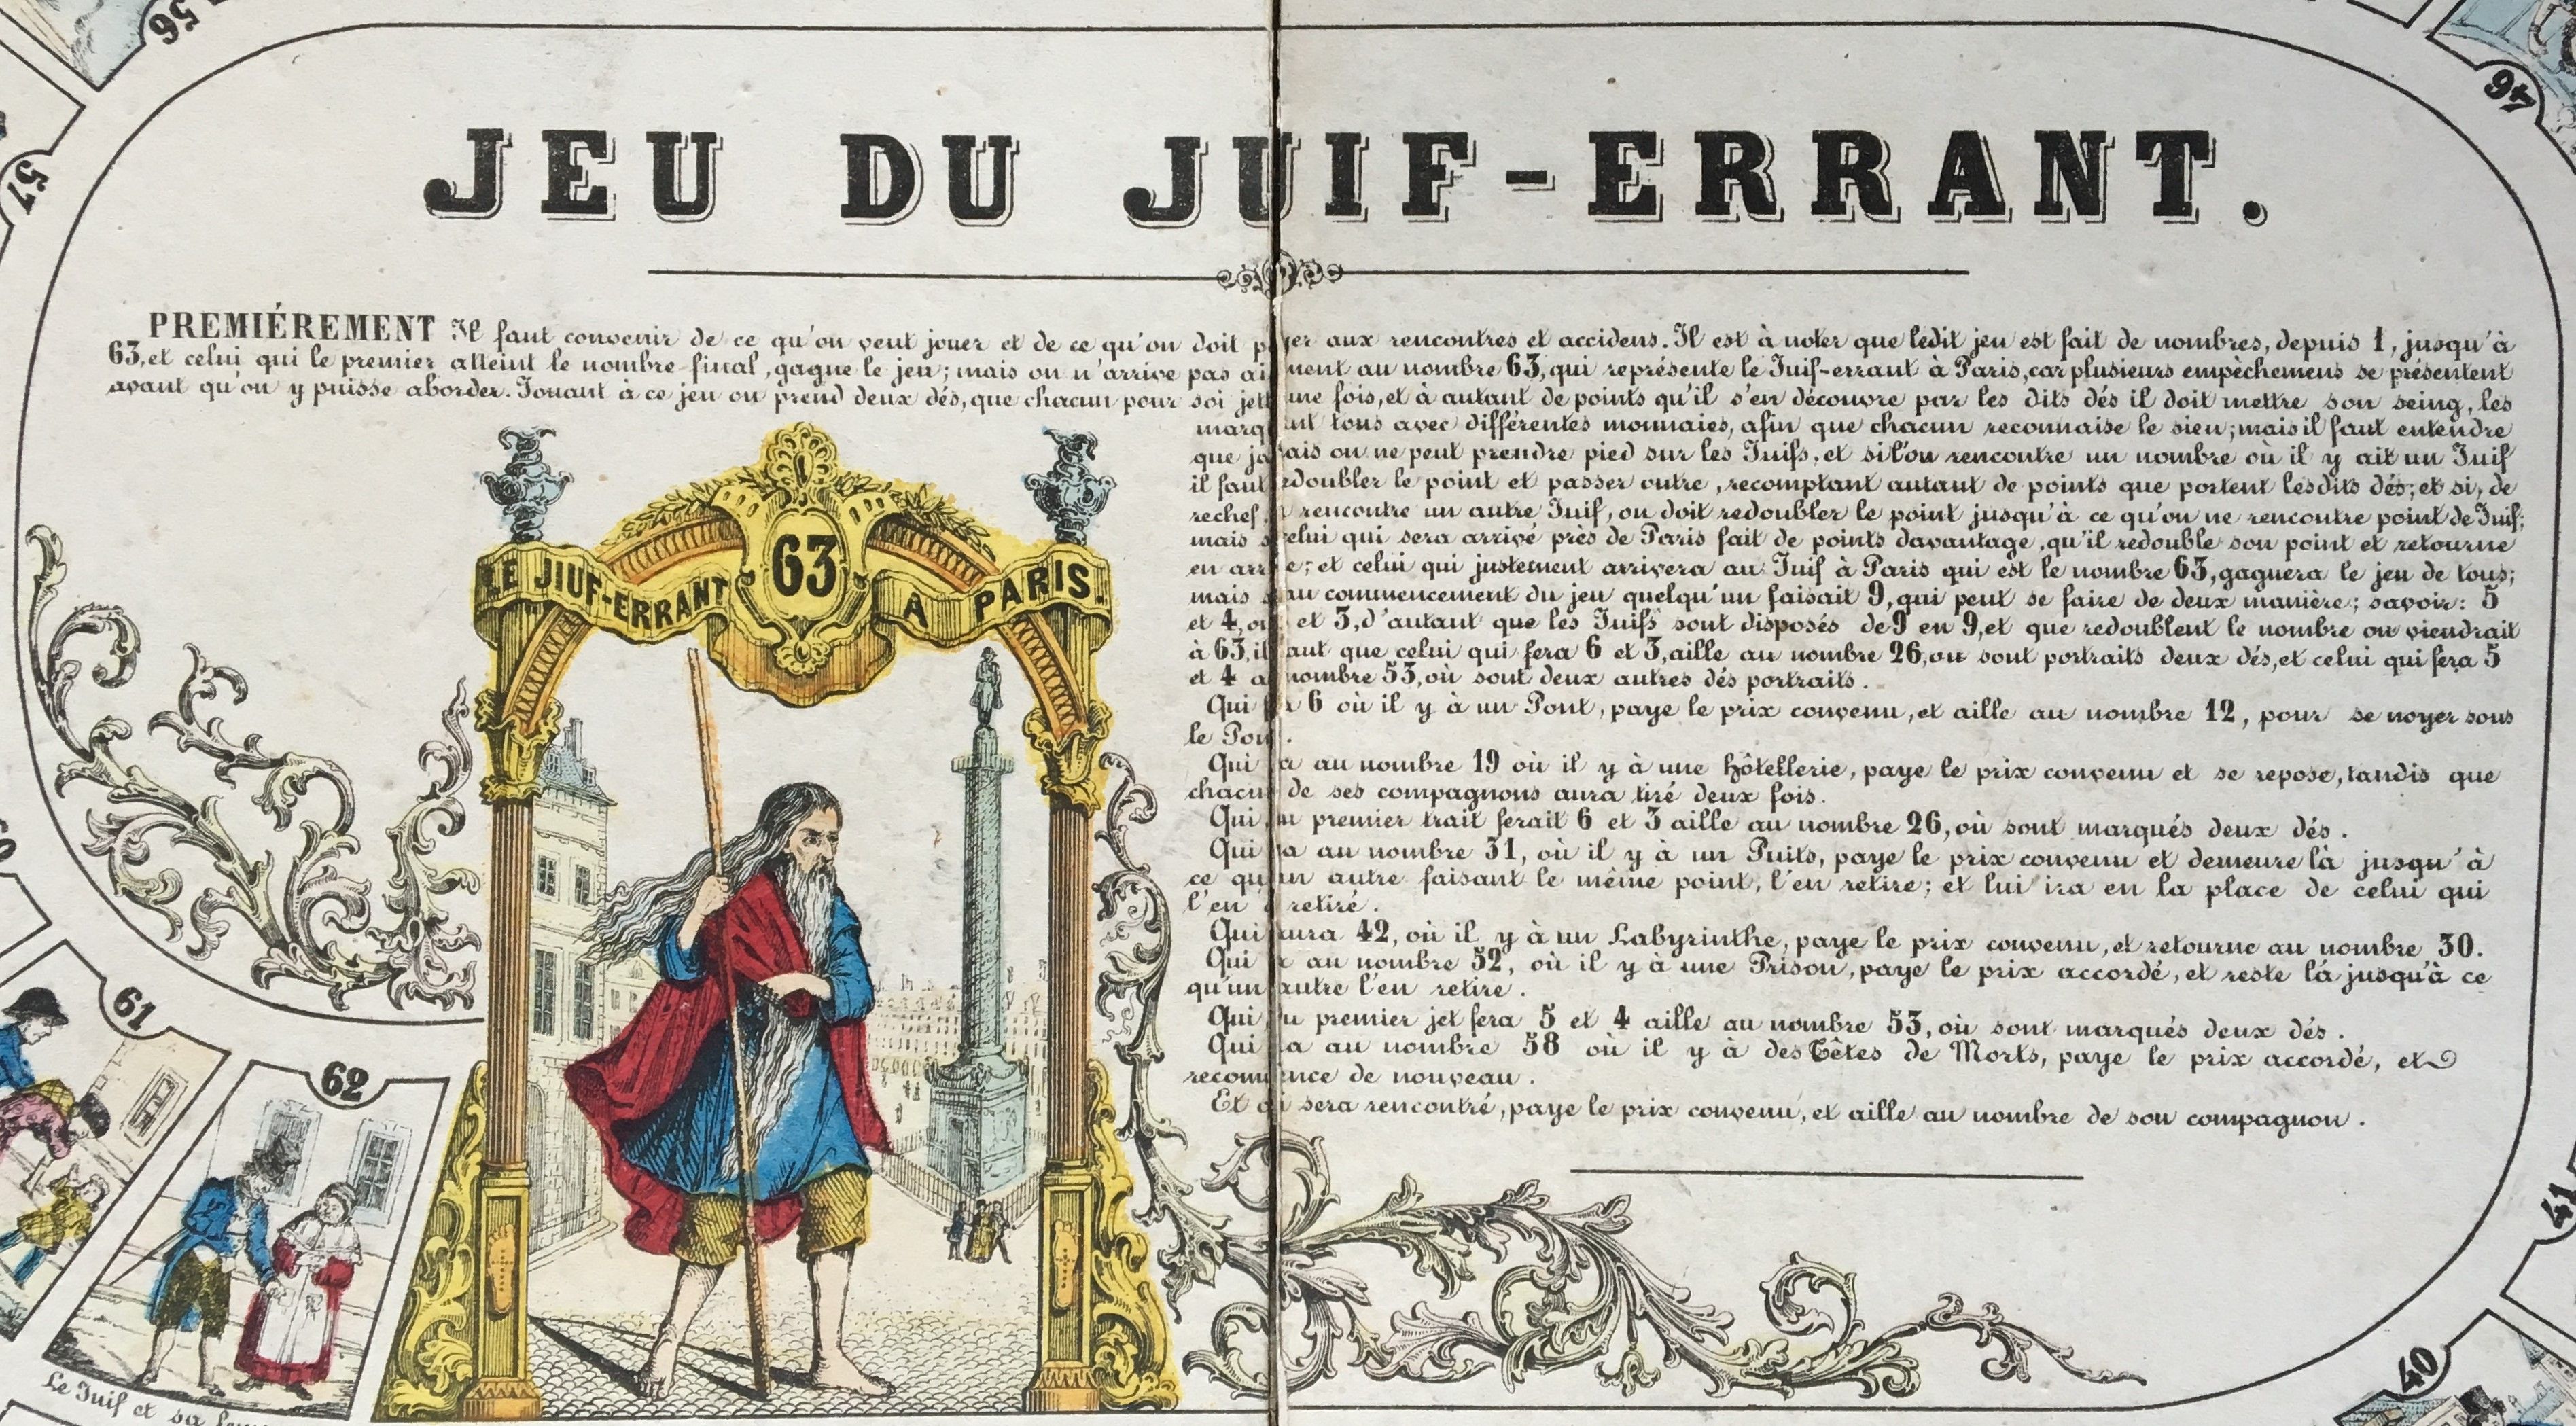 56
46
57
JEU DU JUIF-ERRANT.
PREMIÉREMENT Il faut convenir de ce qu'on veut jouer et de ce qu'on doit payer aux rencontres et accidens. Il est à noter que ledit jeu est fait de nombres, depuis 1, jusqu'à
63, et celui qui le premier atteint le nombre final, gagne le jeu; mais on n'arrive pas aisément au nombre 63, qui représente le Juif-errant à Paris, car plusieurs empêchemens se présentent
avant qu'on y puisse aborder. Jouant à ce jeu on prend deux dés, que chacun pour soi jette une fois, et à autant de points qu'il s'en découvre par les dits dés il doit mettre son seing, les
marquant tous avec différentes monnaies, afin que chacun reconnaise le sien; mais il faut entendre
que jamais on ne peut prendre pied sur les Juifs, et si l'on rencontre un nombre où il y ait un Juif
il faut redoubler le point et passer outre, recomptant autant de points que portent lesdits dés; et si, de
rechef, on rencontre un autre Juif, on doit redoubler le point jusqu'à ce qu'on ne rencontre point de Juif;
mais si celui qui sera arrivé près de Paris fait de points davantage, qu'il redouble son point et retourne
en arrière; et celui qui justement arrivera au Juif à Paris qui est le nombre 63, gagnera le jeu de tous;
mais si au commencement du jeu quelqu'un faisait 9, qui peut se faire de deux manière; savoir: 5
et 4, ou 6 et 3, d'autant que les Juifs sont disposés de 9 en 9, et que redoublent le nombre on viendrait
à 63, il faut que celui qui fera 6 et 3, aille au nombre 26, ou sont portraits deux dés, et celui qui fera 5
et 4 au nombre 53, où sont deux autres dés portraits.
Qui fera 6 où il y à un Pont, paye le prix convenu, et aille au nombre 12, pour se noyer sous
le Pont.
Qui ira au nombre 19 où il y à une hôtellerie, paye le prix convenu et se repose, tandis que
chacun de ses compagnons aura tiré deux fois.
Qui au premier trait ferait 6 et 3 aille au nombre 26, où sont marqués deux dés.
Qui ira au nombre 31, où il y à un Puits, paye le prix convenu et demeure là jusqu'à
ce qu'un autre faisant le même point, l'en retire; et lui ira en la place de celui qui
l'en a retiré.
Qui aura 42, où il y à un Labyrinthe, paye le prix convenu, et retourne au nombre 30.
Qui ira au nombre 52, où il y à une Prison, paye le prix accordé, et reste là jusqu'à ce
qu'un autre l'en retire.
Qui au premier jet fera 5 et 4 aille au nombre 53, où sont marqués deux dés.
Qui ira au nombre 58 où il y à des Têtes de Morts, paye le prix accordé, et
recommence de nouveau.
Et qui sera rencontré, paye le prix convenu, et aille au nombre de son compagnon.
63
LE JIUF-ERRANT A PARIS.
61
62
Le Juif et sa
41
40